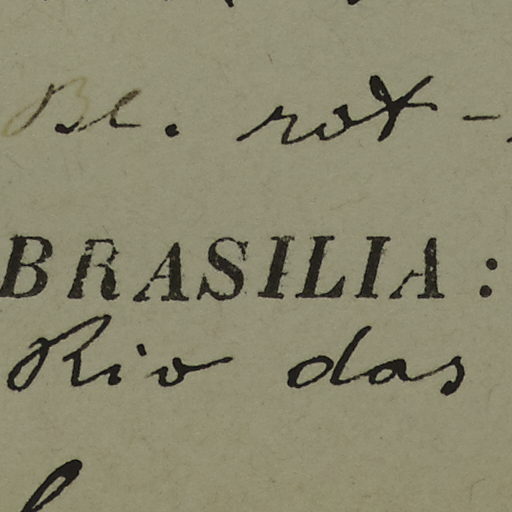 Bl. rot-
BRASILIA:
Rio das